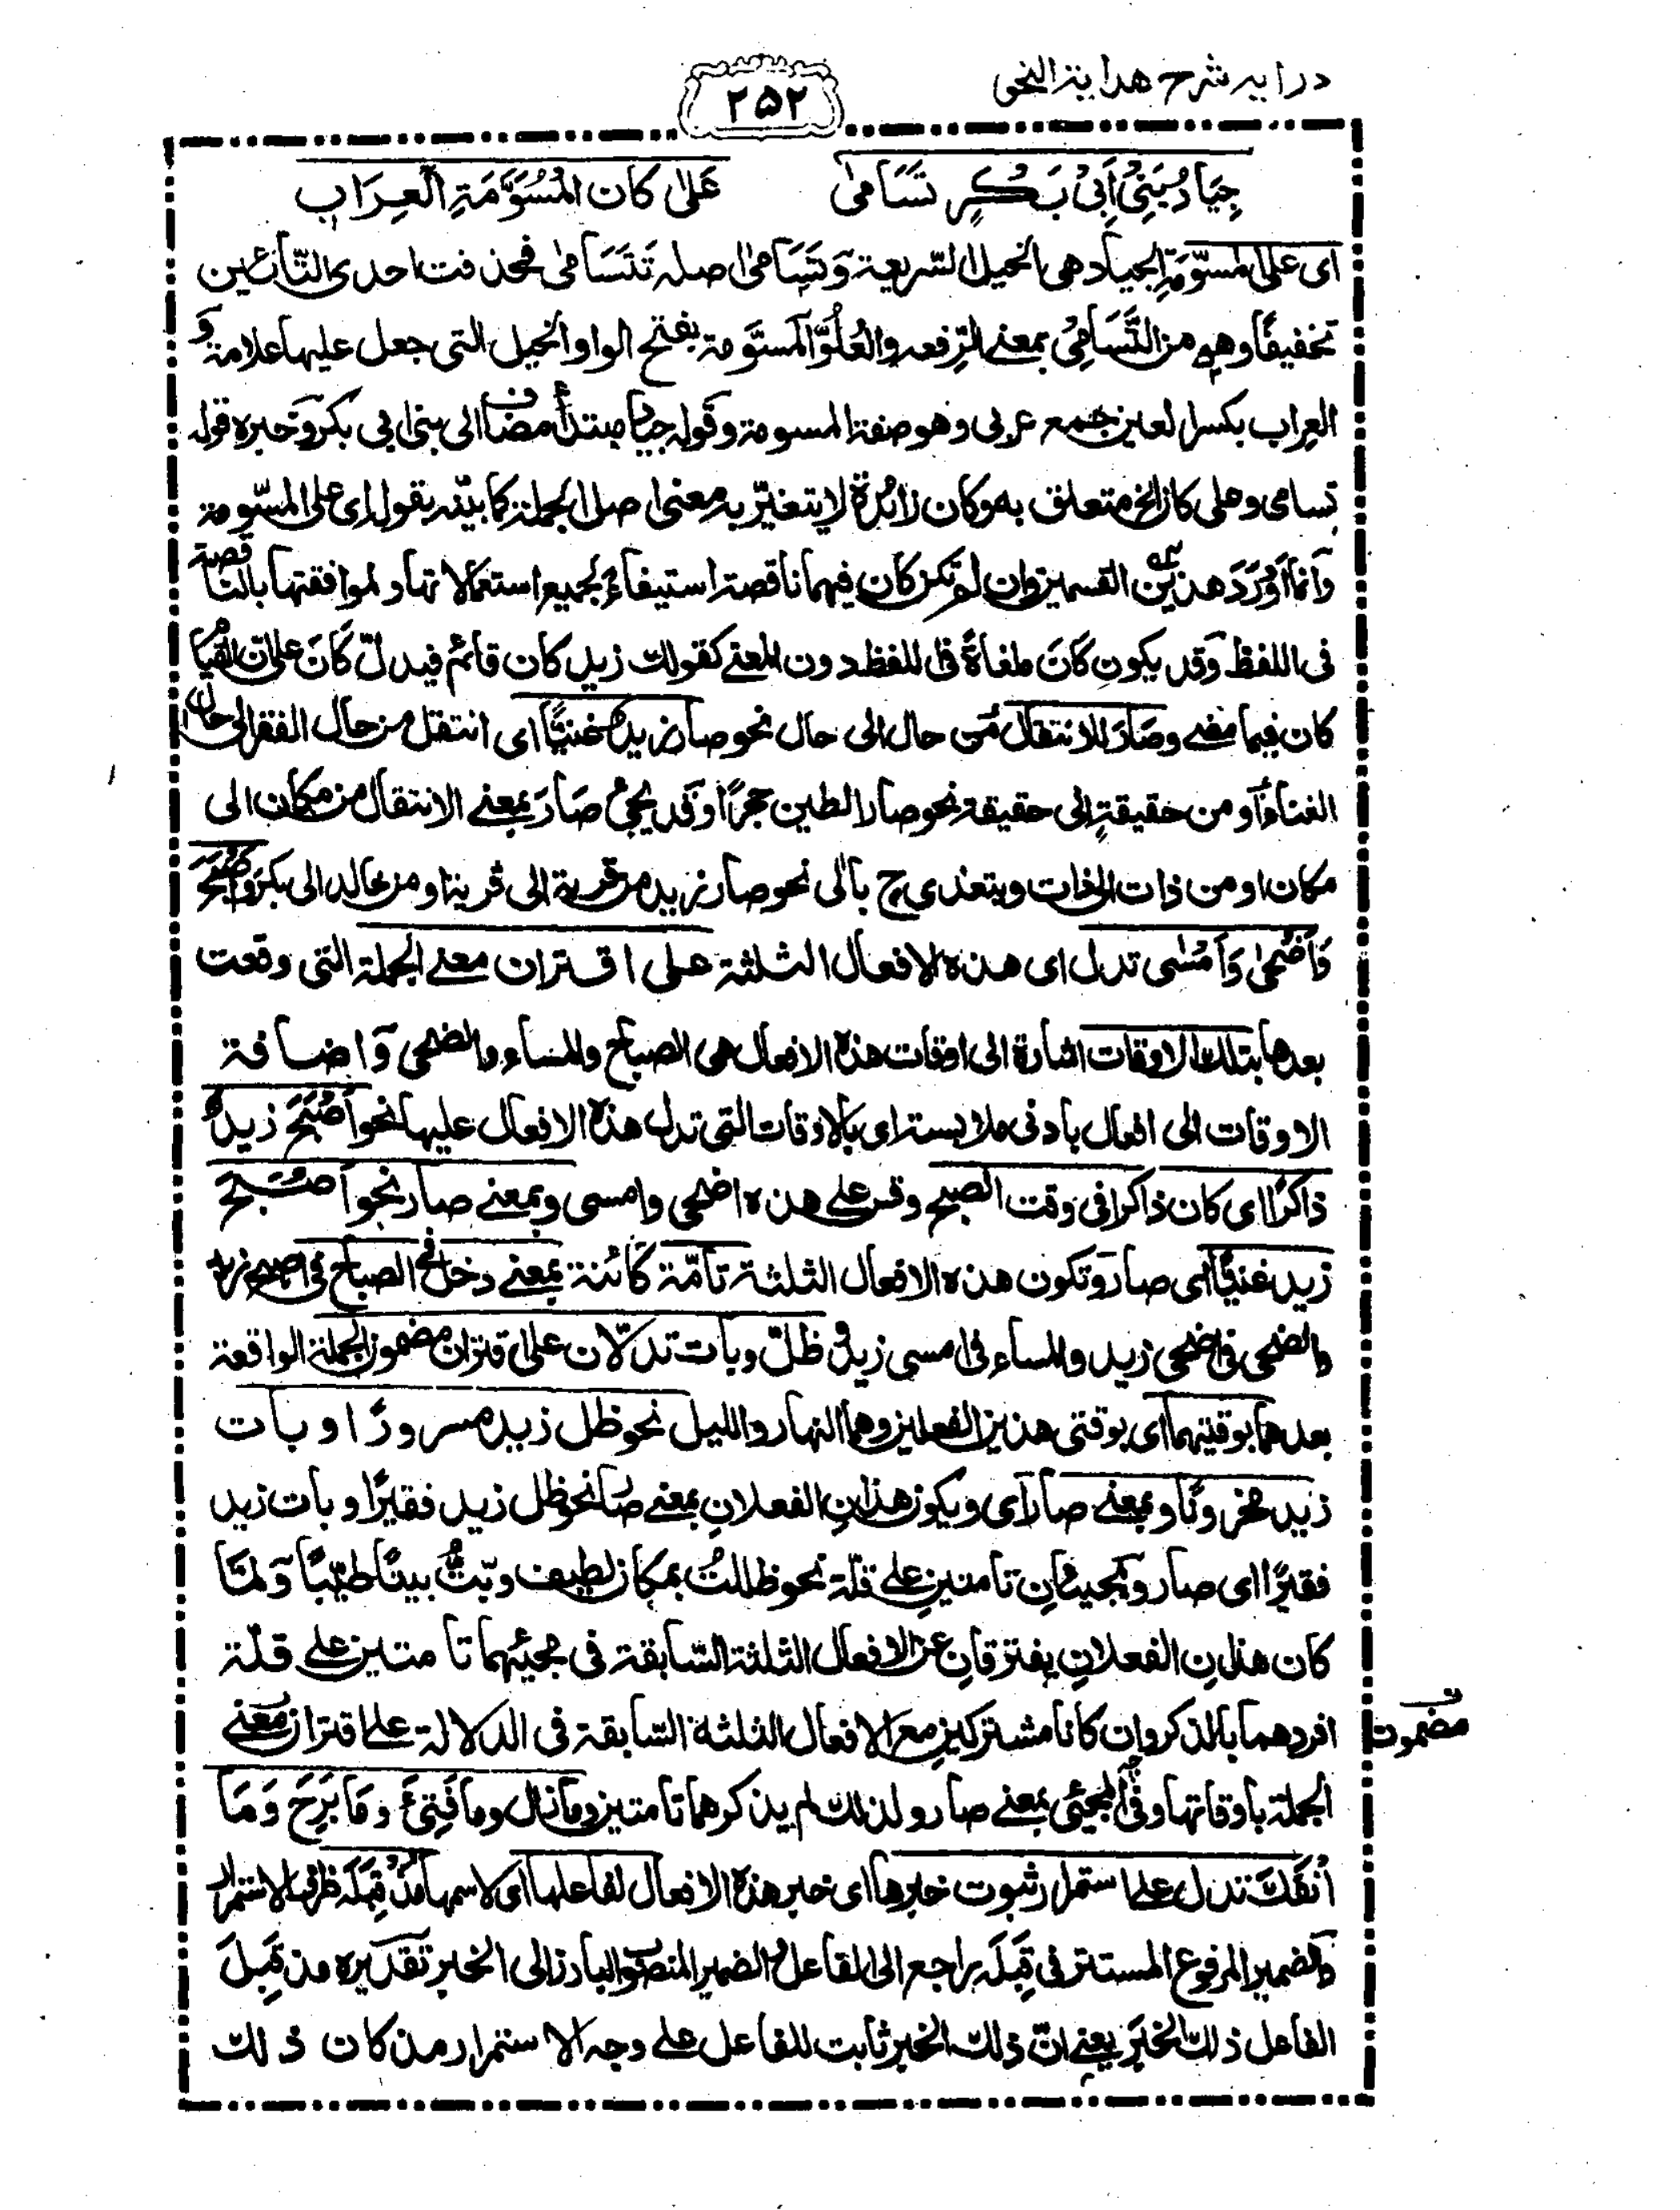 درايه شرح هداية النحو
٢٥٢
جِيَادُ بَنِيْ أَبِيْ بَكْرٍ تَسَامىٰ عَلىٰ كَانَ الْمُسَوَّمَةِ الْعِرَابِ
اى على المسوّمةِ الجياد هى الخيل السريعة وَتَسَامىٰ اصله تَتَسَامىٰ فحذفت احدى التّائين
تخفيفًا وهو من التَّسَامِيْ بمعنے الترفعه والعُلُوّ اَلمسوَّمة بفتح الواو الخيل التى جعل عليها علامة وَ
العِراب بكسر العين جمع عربى وهو صفة المسومة وقوله جياد مبتدأ مضاف الى بنى ابى بكر وخبره قوله
تسامى وعلى كان الخ متعلق به وكان زائدة لا يتغيّر به معنى اصل الجملة كما بيّنه بقوله اى على المسّومة
وَانما اَوْرَدَ هذين القسمين وان لم تكن كان فيهما ناقصة استيفاءً لجميع استعمالاتها ولموافقتها بالناقصة
فى اللفظ وَقد يكون كَانَ ملغاةً فى اللفظ دون المعنے كقولك زيد كان قائم فيدلّ كَانَ على ان القيام
كان فيما مضے وصَارَ للانتقال من حال الى حال نحو صار زيدٌ غنيًّا اى انتقل من حال الفقر الى حال
الغناء أو من حقيقةٍ الى حقيقة نحو صار الطين حجرًا وَقد يجئ صَارَ بمعنے الانتقال من مكان الى
مكان او من ذات الى ذات ويتعدى ح بالى نحو صار زيد من قرية الى قرية او من خالد الى بكر وَاَصْبَحَ
وَاَضْحىٰ وَاَمْسٰى تدل اى هذه الافعال الثلثة على اقتران معنے الجملة التى وقعت
بعدها بتلك الاوقات اشارة الى اوقات هذه الافعال هى الصباح والمساء والضحى وَاضافة
الاوقات الى افعال بادنى ملابسة اى بالاوقات التى تدل هذه الافعال عليها نحو اَصْبَحَ زيدٌ
ذاكرًا اى كان ذاكرا فى وقت الصبح وقس على هذه اضحى وامسى وبمعنے صار نحو اَصْبَحَ
زيد غنيًّا اى صار وَتكون هذه الافعال الثلثة تامّة كائنة بمعنے دخل فى الصباح فى اصبح زيد
والضحى فى اضحى زيد والمساء فى امسى زيد وَظلّ وبات تدلّان على اقتران مضمون الجملة الواقعة
بعدهما بوقتيهما اى بوقتى هذين الفعلين وهما النهار والليل نحو ظل زيد مسرورًا وبات
زيد محزونًا وبمعنے صار اَى ويكون هذان الفعلانِ بمعنے صار نحو ظل زيد فقيرًا وبات زيد
فقيرًا اى صار وَيجيئانِ تامتينِ على قلّة نحو ظللتُ بمكان لطيف وبِتُّ بيتًا طيّبًا وَلمّا
كان هذان الفعلانِ يفترقانِ عن الافعال الثلثة السّابقة فى مجيئهما تامتين على قلّة
افردهما بالذكر وان كانا مشتركين مع الافعال الثلثة السّابقة فى الدلالة على اقتران معنے
مضمون
الجملة باوقاتها وفى المجيئى بمعنے صار ولذلك لم يذكرهما تامتين وما زال وما فَتِئَ وَمَا بَرِحَ وَمَا
اَنْفَكَّ تدل على استمرار ثبوت خبرها اى خبر هذه الافعال لفاعلها اى لاسمها مُذْ قَبِلَه ظرف الاستمرار
والضمير المرفوع المستتر فى قَبِلَه راجع الى الفاعل والضمير المنصوب البارز الى الخبر تقديره مذ قَبِلَ
الفاعل ذلك الخبرَ يعنے انّ ذلك الخبر ثابت للفاعل على وجه الاستمرار مذ كان ذلك